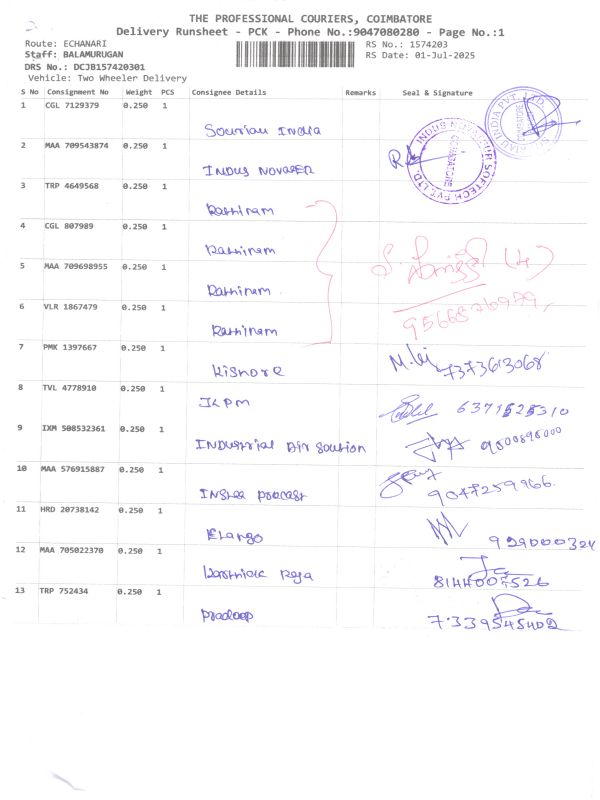 THE PROFESSIONAL COURIERS, COIMBATORE
Delivery Runsheet - PCK - Phone No.:9047080280 - Page No.:1
Route: ECHANARI RS No.: 1574203
Staff: BALAMURUGAN RS Date: 01-Jul-2025
DRS No.: DCJB157420301
Vehicle: Two Wheeler Delivery
S No Consignment No Weight PCS Consignee Details Remarks Seal & Signature
1 CGL 7129379 0.250 1
Souriau India
2 MAA 709543874 0.250 1
INDUS NOVATEUR SOFTECH PVT. LTD.
COIMBATORE
Indus Novateer
3 TRP 4649568 0.250 1
Rathinam
4 CGL 807989 0.250 1
Rathinam
(4)
5 MAA 709698955 0.250 1
Rathinam
9566876979
6 VLR 1867479 0.250 1
Rathinam
7 PMK 1397667 0.250 1
Kishore 7373613068
8 TVL 4778910 0.250 1
JKPM 6371525310
9 IXM 508532361 0.250 1
Industrial Air Soution 9600896000
10 MAA 576915887 0.250 1
9047259966
11 HRD 20738142 0.250 1
Elango
12 MAA 705022370 0.250 1
Karthick Raja 8144007526
13 TRP 752434 0.250 1
Pradeep 7339545402